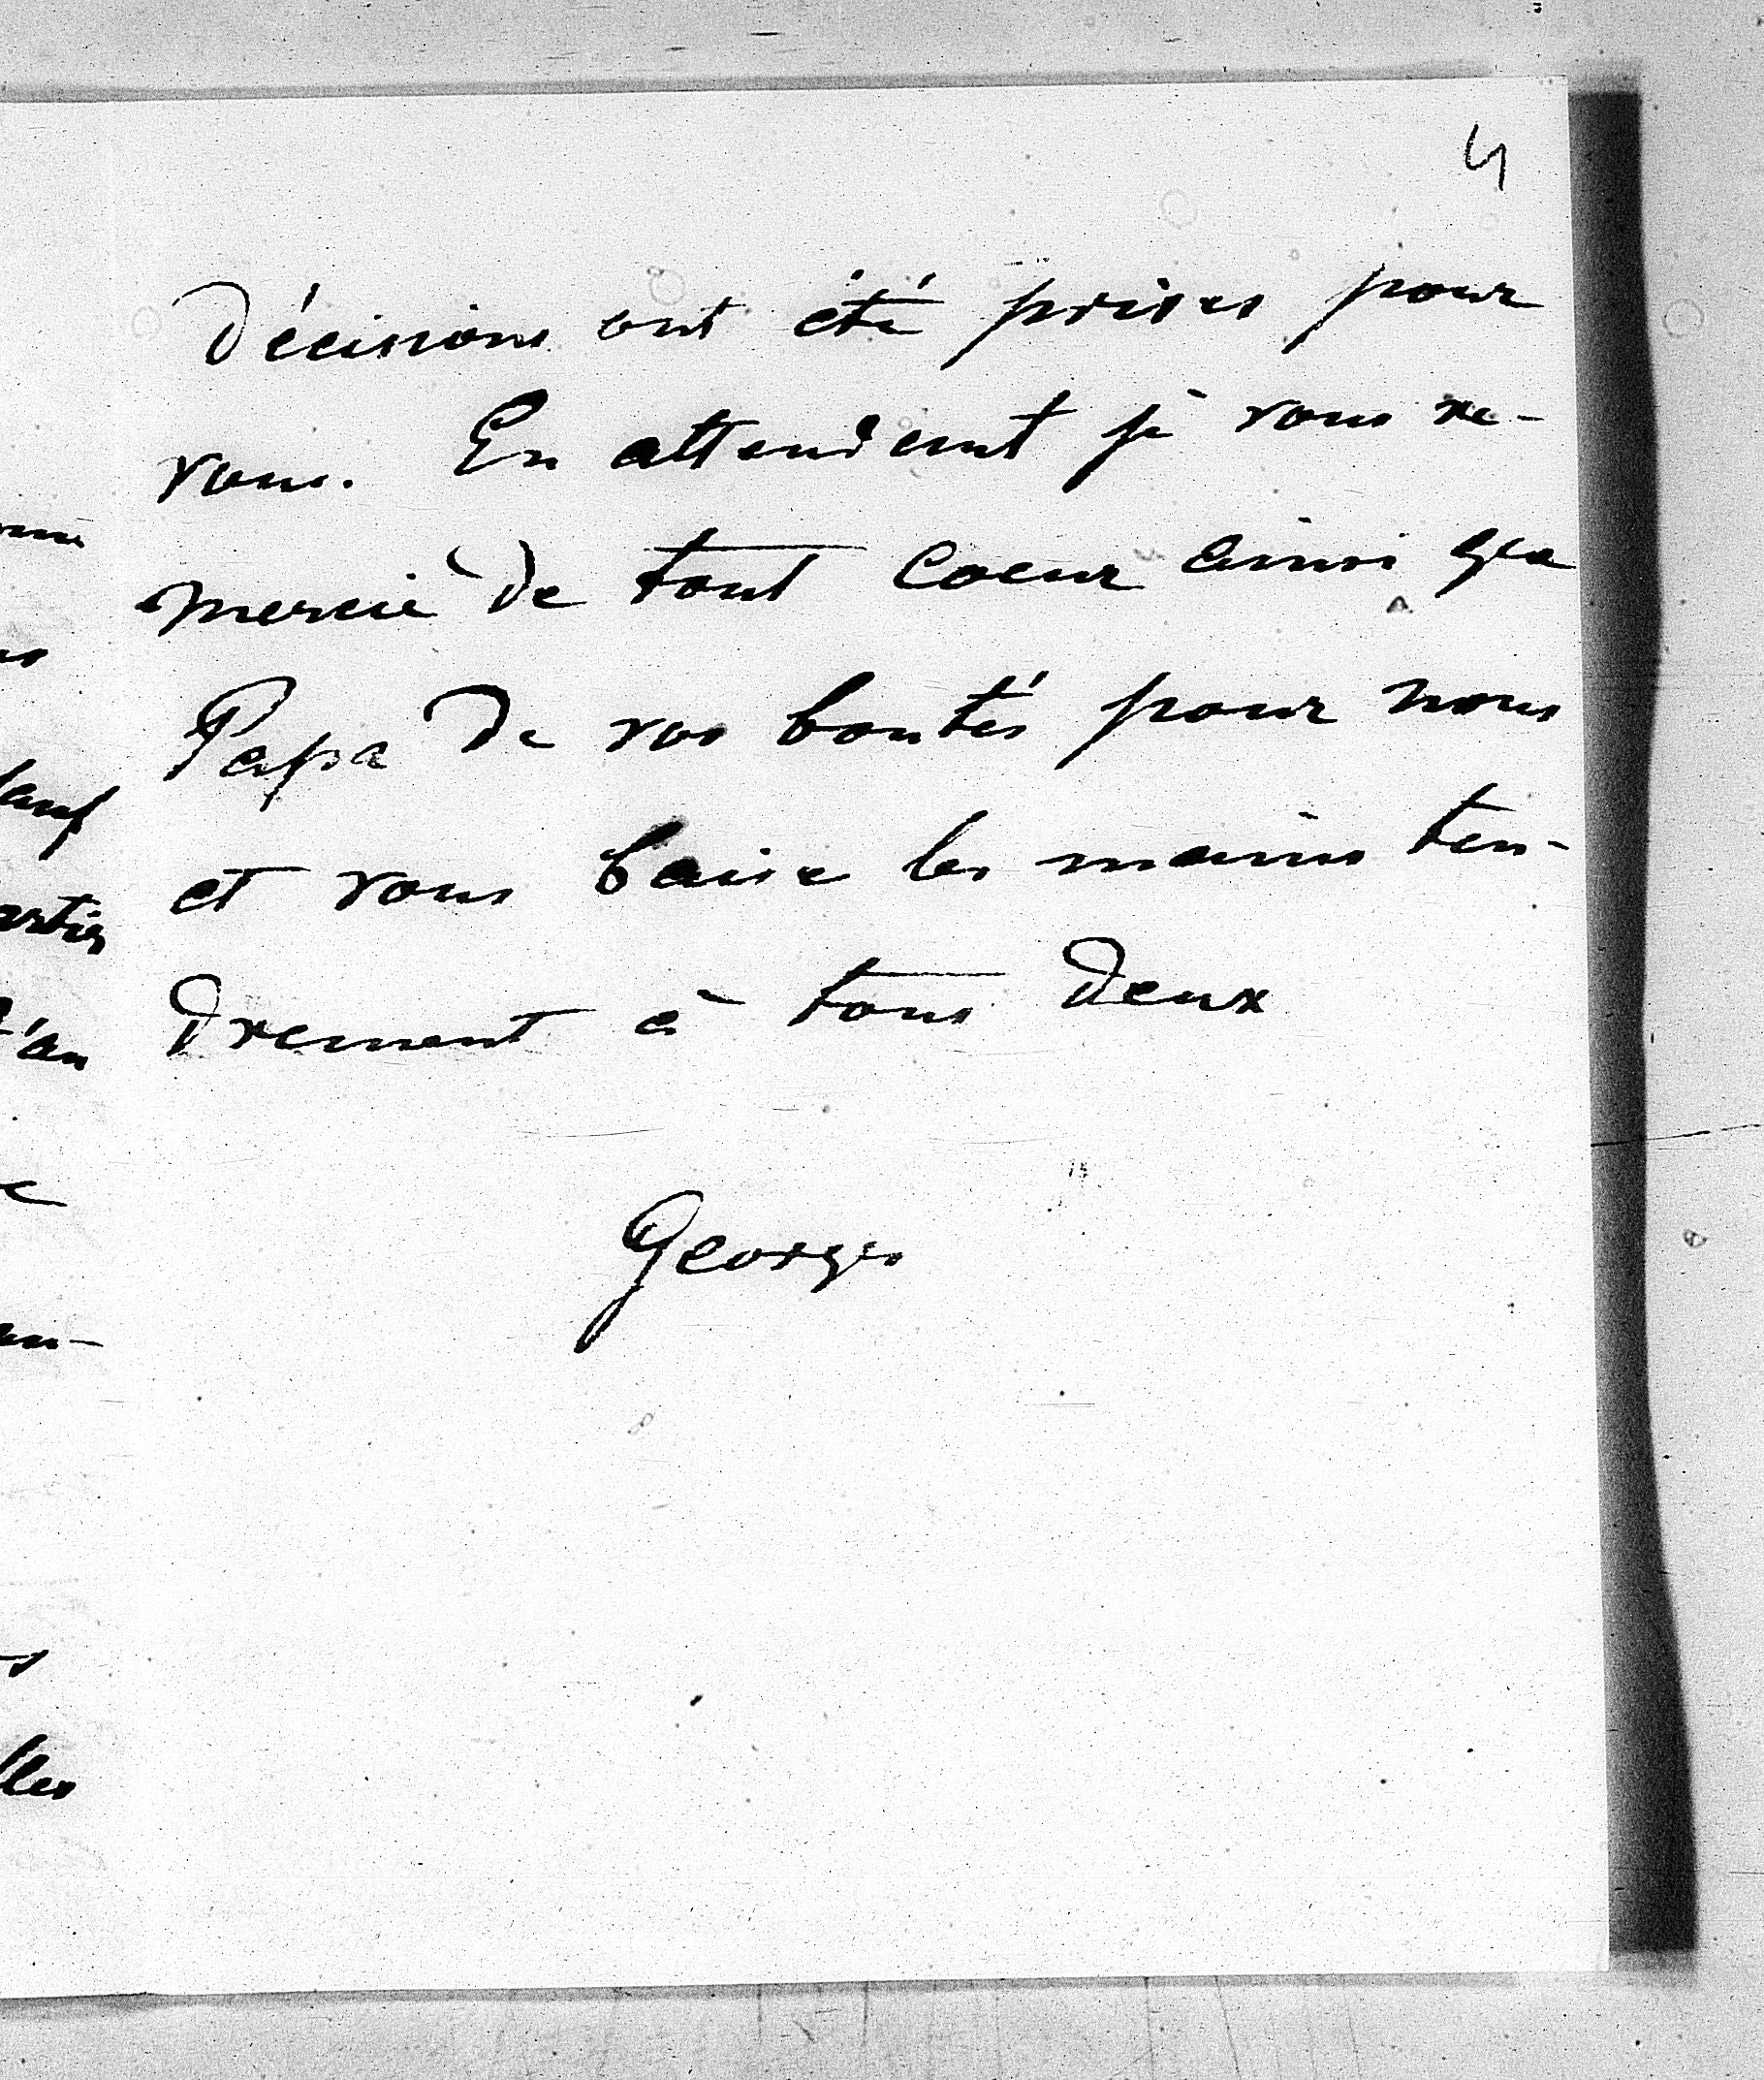 4
décisions ont été prises pour
vous. En attendant je vous re-
mercie de tout coeur ainsi que
Papa de vos bontés pour nous
et vous baise les mains ten-
drement à tous deux
Georges